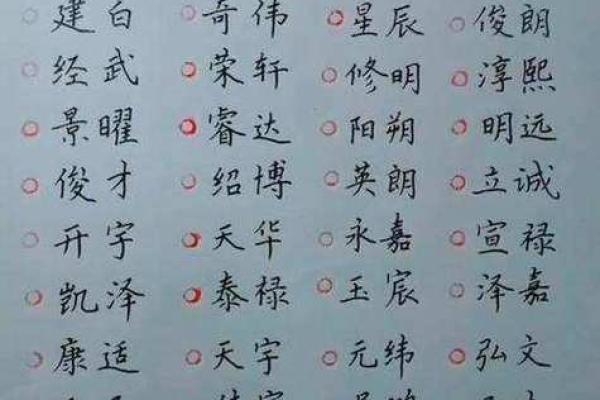 建白 奇伟 星辰 俊朗
经武 荣轩 修明 淳熙
景曜 睿达 阳朔 明远
俊才 绍博 英朗 立诚
开宇 天华 永嘉 宣禄
凯泽 泰禄 玉宸 泽嘉
康适 天宇 元纬 弘文